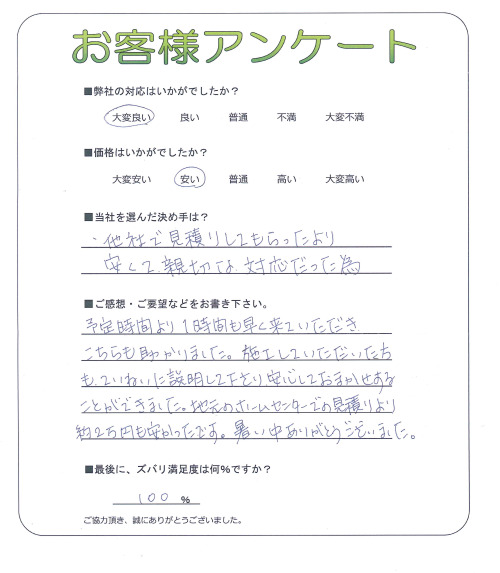 お客様アンケート
■弊社の対応はいかがでしたか？
大変良い 良い 普通 不満 大変不満
■価格はいかがでしたか？
大変安い 安い 普通 高い 大変高い
■当社を選んだ決め手は？
・他社で見積りしてもらったより
安くて、親切な対応だった為
■ご感想・ご要望などをお書き下さい。
予定時間より1時間も早く来ていただき
こちらも助かりました。施工していただいた方
も、ていねいに説明して下さり安心しておまかせする
ことができました。地元のホームセンターでの見積りより
約2万円も安かったです。暑い中ありがとうございました。
■最後に、ズバリ満足度は何％ですか？
100 %
ご協力頂き、誠にありがとうございました。